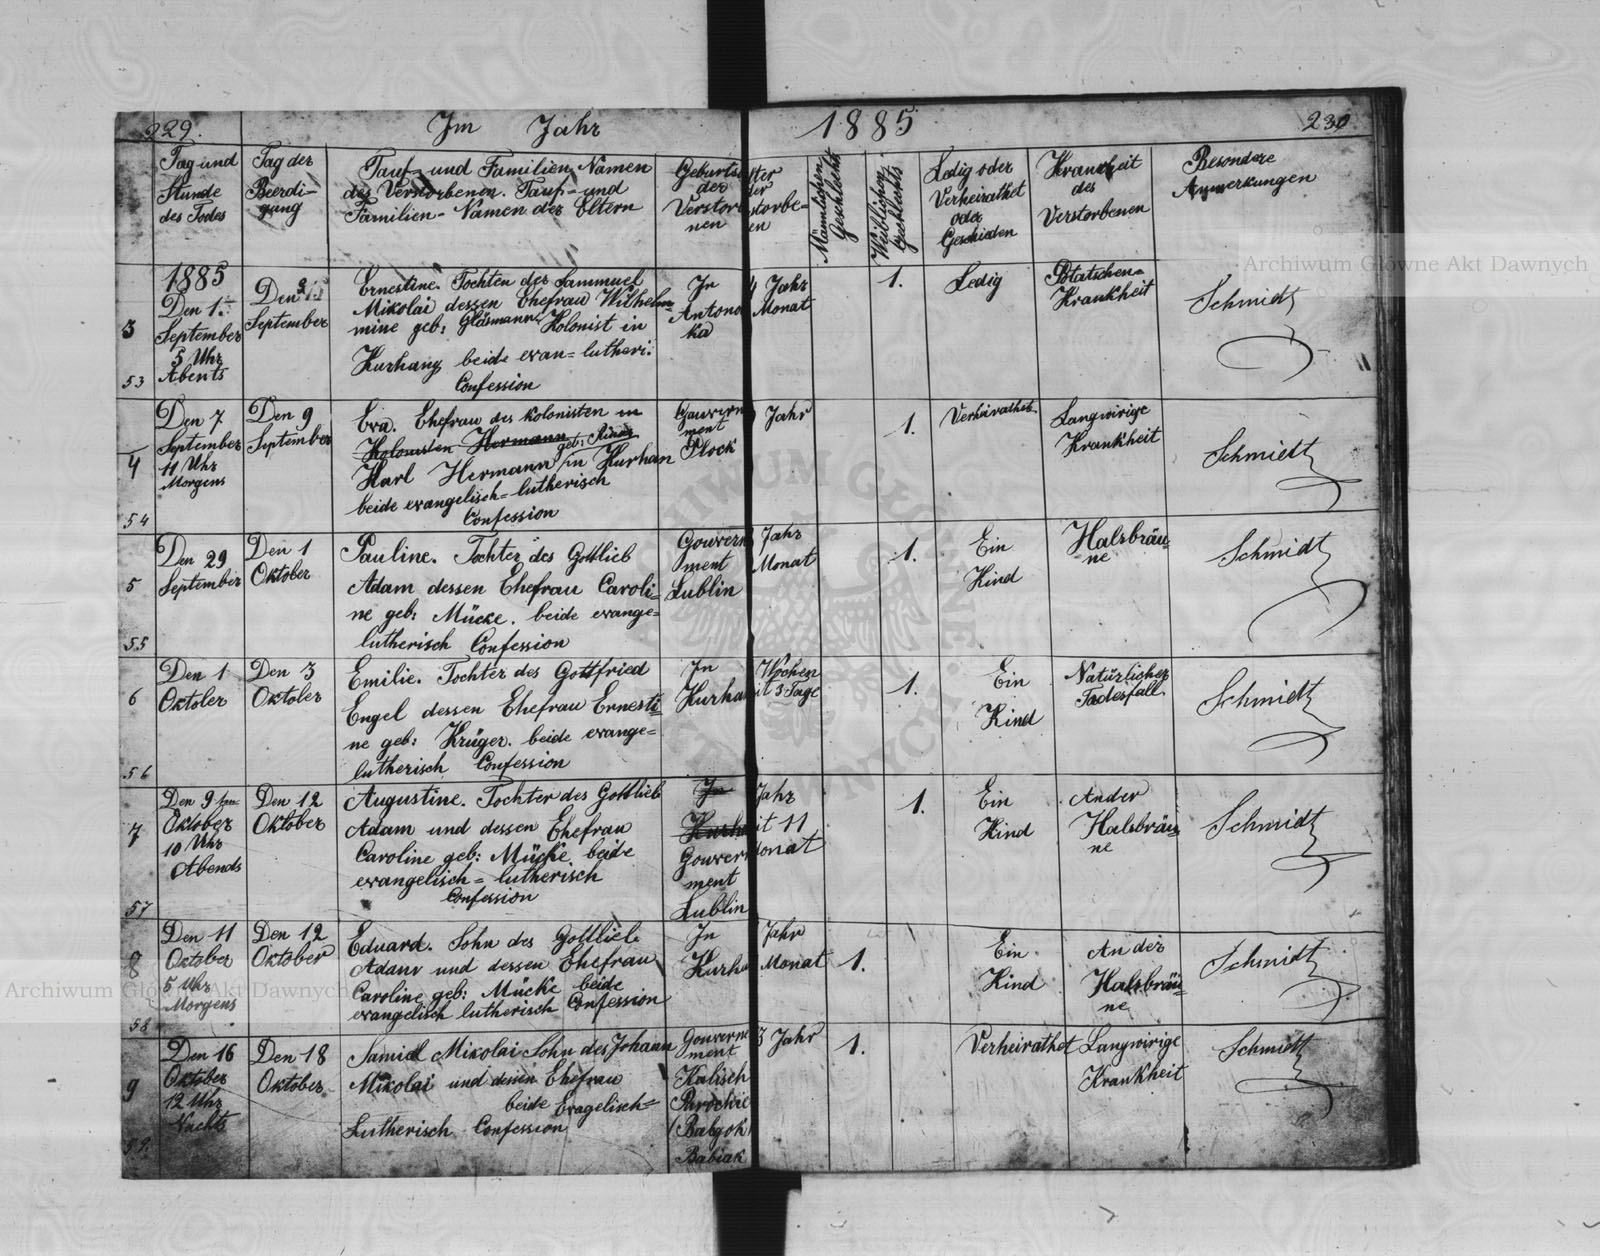 229. Im Jahr 1885 230
Tag und
Stunde
des Todes
Tag der
Beerdi-
gung
Tauf- und Familien Namen
des Verstorbenen. Tauf- und
Familien- Namen der Eltern
Geburts
der
Verstor
nen
lter
der
storbe=
en
Männlichen
Geschlecht
Weiblichen
Geschlechts
Ledig oder
Verheirathet
oder
Geschieden
Krankheit
des
Verstorbenen
Besondere
Anmerkungen
3
53
1885
Den 1
September
5 Uhr
Abents
Den
September
Ernestine. Tochter der Sammuel
Mikolai dessen Ehefrau Wilhelm=
mine geb: Gläsmann Kolonist in
Kurhany beide evan= lutheri.
Confession
In
Antono
ka
4 Jahr
Monat
1.
Ledig
Krankheit
Schmidt
4
54
Den 7
September
11 Uhr
Morgens
Den 9
September
Eva. Ehefrau des Kolonisten in
Kolonisten Hermann geb:
Karl Hermann in Kurhan
beide evangelisch= lutherisch
Confession
Gouvern
ment
Plock
Jahr
1.
Verheirathet
Langwirige
Krankheit
Schmiedt
5
55
Den 29
September
Den 1
Oktober
Pauline. Tochter des Gottlieb
Adam dessen Ehefrau Caroli=
ne geb: Mücke. beide evange=
lutherisch Confession
Gouvern
ment
Lublin
Jahr
Monat
1.
Ein
Kind
Halsbräu=
ne
Schmidt
6
56
Den 1
Oktober
Den 3
Oktober
Emilie. Tochter des Gottfried
Engel dessen Ehefrau Ernesti=
ne geb: Krüger. beide evange=
lutherisch Confession
In
Kurha
Wochen
it 3 Tage
1.
Ein
Kind
Natürlicher
Todesfall
Schmidt
7
57
Den 9
Oktober
10 Uhr
Abends
Den 12
Oktober
Augustine. Tochter des Gottlieb
Adam und dessen Ehefrau
Caroline geb: Mücke beide
evangelisch= lutherisch
Confession
In
Kurha
Gouvern
ment
Lublin
Jahr
it 11
Monat
1.
Ein
Kind
An der
Halsbräu=
ne
Schmidt
8
58
Den 11
Oktober
5 Uhr
Morgens
Den 12
Oktober
Eduard. Sohn des Gottlieb
Adam und dessen Ehefrau
Caroline geb: Mücke beide
evangelisch lutherisch Confession
In
Kurha
Jahr
Monat
1.
Ein
Kind
An der
Halsbräu=
ne
Schmidt
9
59.
Den 16
Oktober
12 Uhr
Nachts
Den 18
Oktober
Samiel Mikolai Sohn des Johann
Mikolai und dessen Ehefrau
beide Evagelisch=
Lutherisch Confession
Gouverne
ment
Kalisch
Parochie
Babiak
3 Jahr
1.
Verheirathet
Langwirige
Krankheit
Schmidt
Archiwum Główne Akt Dawnych
Archiwum Główne Akt Dawnych